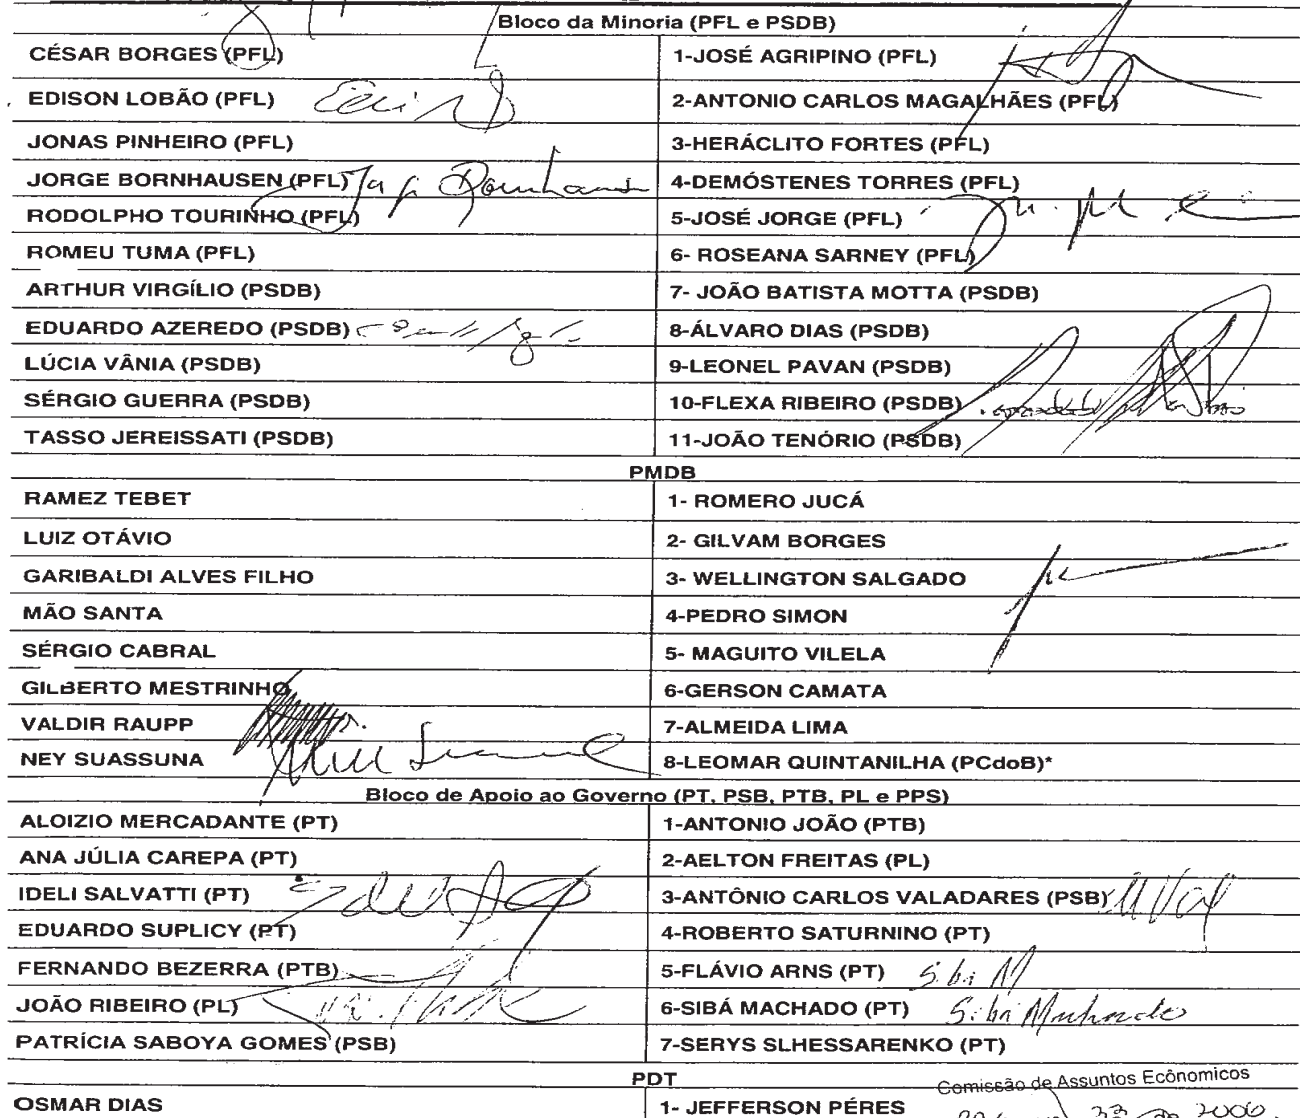 Bloco da Minoria (PFL e PSDB)
CÉSAR BORGES (PFL) 1-JOSÉ AGRIPINO (PFL)
EDISON LOBÃO (PFL) 2-ANTONIO CARLOS MAGALHÃES (PFL)
JONAS PINHEIRO (PFL) 3-HERÁCLITO FORTES (PFL)
JORGE BORNHAUSEN (PFL) 4-DEMÓSTENES TORRES (PFL)
RODOLPHO TOURINHO (PFL) 5-JOSÉ JORGE (PFL)
ROMEU TUMA (PFL) 6- ROSEANA SARNEY (PFL)
ARTHUR VIRGÍLIO (PSDB) 7- JOÃO BATISTA MOTTA (PSDB)
EDUARDO AZEREDO (PSDB) 8-ÁLVARO DIAS (PSDB)
LÚCIA VÂNIA (PSDB) 9-LEONEL PAVAN (PSDB)
SÉRGIO GUERRA (PSDB) 10-FLEXA RIBEIRO (PSDB)
TASSO JEREISSATI (PSDB) 11-JOÃO TENÓRIO (PSDB)
PMDB
RAMEZ TEBET 1- ROMERO JUCÁ
LUIZ OTÁVIO 2- GILVAM BORGES
GARIBALDI ALVES FILHO 3- WELLINGTON SALGADO
MÃO SANTA 4-PEDRO SIMON
SÉRGIO CABRAL 5- MAGUITO VILELA
GILBERTO MESTRINHO 6-GERSON CAMATA
VALDIR RAUPP 7-ALMEIDA LIMA
NEY SUASSUNA 8-LEOMAR QUINTANILHA (PCdoB)*
Bloco de Apoio ao Governo (PT, PSB, PTB, PL e PPS)
ALOIZIO MERCADANTE (PT) 1-ANTONIO JOÃO (PTB)
ANA JÚLIA CAREPA (PT) 2-AELTON FREITAS (PL)
IDELI SALVATTI (PT) 3-ANTÔNIO CARLOS VALADARES (PSB)
EDUARDO SUPLICY (PT) 4-ROBERTO SATURNINO (PT)
FERNANDO BEZERRA (PTB) 5-FLÁVIO ARNS (PT) Siba M
JOÃO RIBEIRO (PL) 6-SIBÁ MACHADO (PT) Sibá Machado
PATRÍCIA SABOYA GOMES (PSB) 7-SERYS SLHESSARENKO (PT)
PDT
Comissão de Assuntos Ecônomicos
OSMAR DIAS 1- JEFFERSON PÉRES
33 de 2006